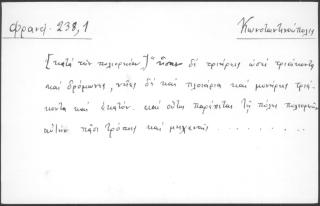 Φρανσ. 238,1
Κωνσταντινούπολις
[κατὰ τὴν πολιορκίαν] ἦσαν δὲ τριήρεις ὡσεὶ τριάκοντα
καὶ δρόμωνες, νῆες δὲ καὶ πλοιάρια καὶ μονήρεις τριά-
κοντα καὶ ἑκατόν. καὶ οὕτως παρίσταται τῇ πόλει πολιορκῶν
αὐτὴν πᾶσι τρόποις καὶ μηχαναῖς . . . . . . . . .